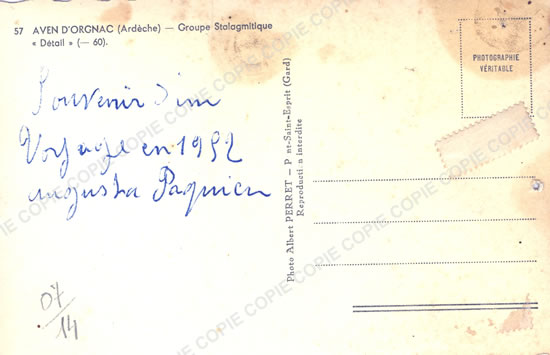 57 AVEN D'ORGNAC (Ardèche) — Groupe Stalagmitique
« Détail » (— 60).
PHOTOGRAPHIE
VÉRITABLE
Souvenir d'un
Voyage en 1952
Augusta Paquien
Photo Albert PERRET — P nt-Saint-Esprit (Gard)
Reproducti n interdite
07/14
COPIE COPIE COPIE COPIE COPIE COPIE